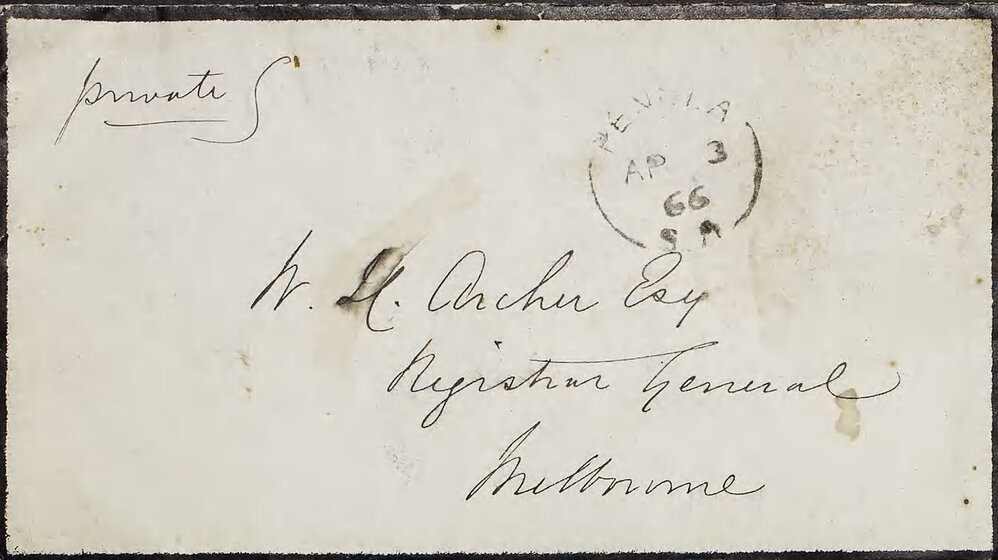 private
PENOLA
AP 3
66
S A
W. H. Archer Esq
Registrar General
Melbourne